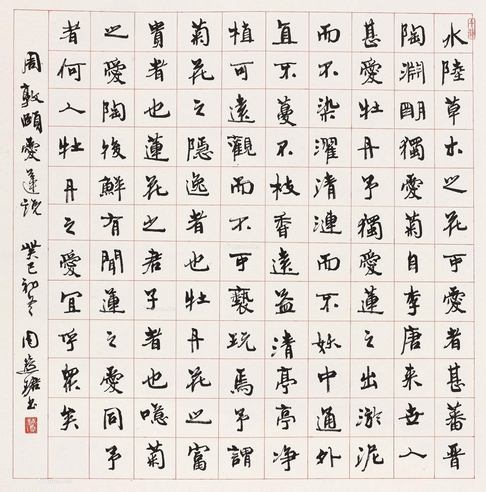 水陸草木之花可愛者甚蕃晉
陶淵明獨愛菊自李唐來世人
甚愛牡丹予獨愛蓮之出淤泥
而不染濯清漣而不妖中通外
直不蔓不枝香遠益清亭亭净
植可遠觀而不可褻玩焉予謂
菊花之隱逸者也牡丹花之富
貴者也蓮花之君子者也噫菊
之愛陶後鮮有聞蓮之愛同予
者何人牡丹之愛宜乎眾矣
周敦頤愛蓮説 癸巳初冬 周書